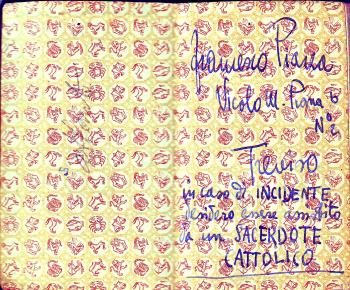 Francesco Piazza
Vicolo M. Pigna 6
N° 2
Treviso
in caso di INCIDENTE
desidero essere assistito
da un SACERDOTE
CATTOLICO